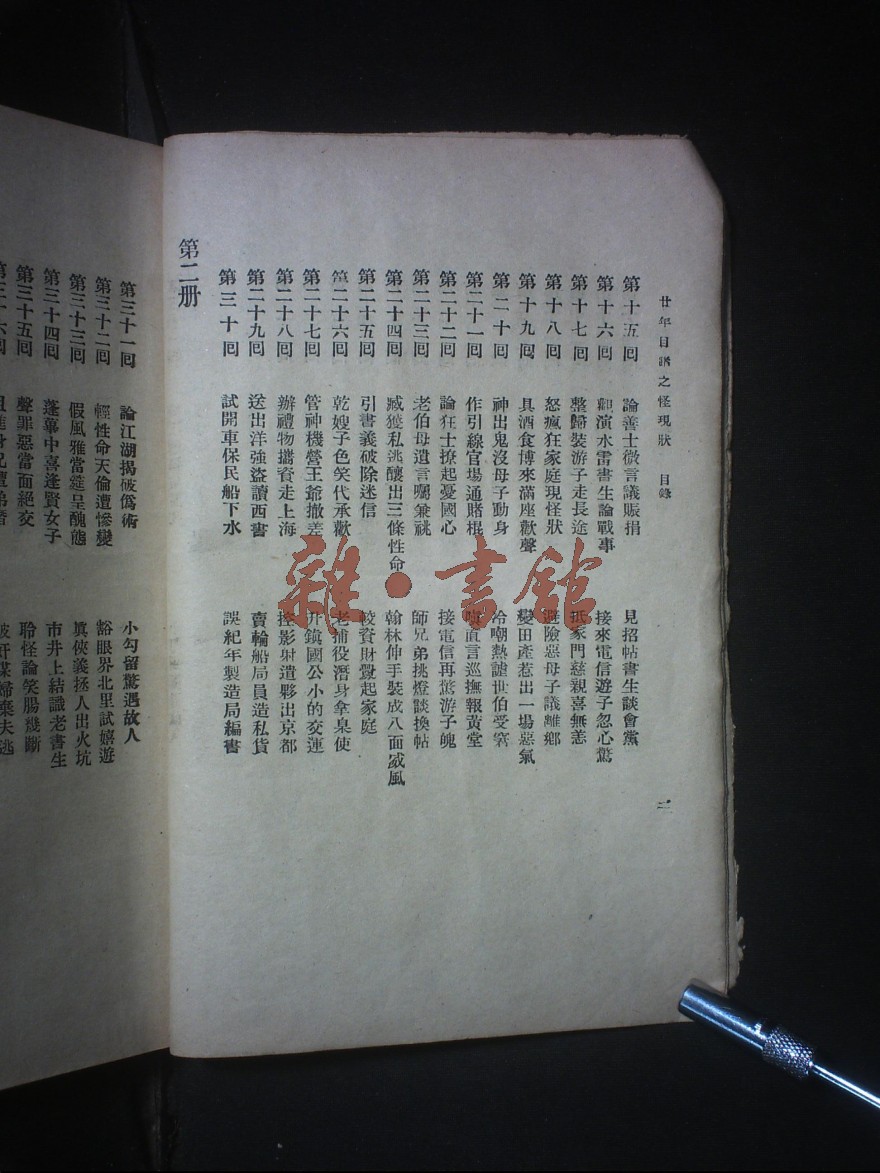 廿年目睹之怪現狀 目錄
第十五回 論善士微言議賑捐 見招帖書生談會黨
第十六回 觀演水雷書生論戰事 接來電信遊子忽心驚
第十七回 整歸裝游子走長途 抵家門慈親喜無恙
第十八回 怒瘋狂家庭現怪狀 避險惡母子議離鄉
第十九回 具酒食博來滿座歡聲 變田產惹出一場惡氣
第二十回 神出鬼沒母子動身 冷嘲熱謔世伯受窘
第二十一回 作引線官場通賭棍 嗔直言巡撫報黃堂
第二十二回 論狂士撩起憂國心 接電信再驚游子魄
第二十三回 老伯母遺言囑兼祧 師兄弟挑燈談換帖
第二十四回 臧獲私逃釀出三條性命 翰林伸手裝成八面威風
第二十五回 引書義破除迷信 較資財釁起家庭
第二十六回 乾嫂子色笑代承歡 老捕役潛身拿臬使
第二十七回 管神機營王爺撤差 升鎮國公小的交運
第二十八回 辦禮物攜資走上海 控影射遣夥出京都
第二十九回 送出洋強盜讀西書 賣輪船局員造私貨
第三十回 試開車保民船下水 誤紀年製造局編書
第二册
二
第三十一回 論江湖揭破僞術 小勾留驚遇故人
第三十二回 輕性命天倫遭慘變 豁眼界北里試嬉遊
第三十三回 假風雅當筵呈醜態 眞俠義拯人出火坑
第三十四回 蓬蓽中喜逢賢女子 市井上結識老書生
第三十五回 聲罪惡當面絕交 聆怪論笑腸幾斷
雜·書館